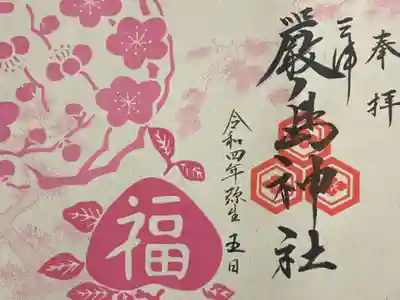 奉拝
三津
厳島神社
令和四年弥生五日
福